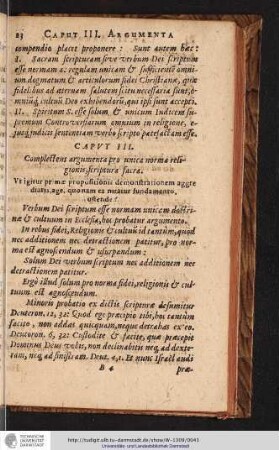 23 CAPUT III. ARGUMENTA
compendio placet proponere: Sunt autem hæc:
I. Sacram scripturam sive verbum Dei scriptum
esse normam a: regulam unicam & sufficientē omni-
um dogmatum & articulorum fidei Christianæ, quæ
fidelibus ad æternam salutem scitu necessaria sint,
omniūq; cultuū Deo exhibendorū, qui ipsi sunt accepti.
II. Spiritum S. esse solum & unicum Iudicem su-
premum Controversiarum omnium in religione,
ejusq; judicii sententiam verbo scripto patefactam esse.
CAPVT III.
Complectens argumenta pro unica norma reli-
gionis, scriptura sacra.
Vt igitur primæ propositionis demonstrationem aggre
diaris, age, quonam ea nitatur fundamento,
ostende?
Verbum Dei scriptum esse normam unicam doctri-
næ & cultuum in Ecclesia, hoc probatur argumento.
In rebus fidei, Religionis & cultuū id tantūm, quod
nec additionem nec detractionem patitur, pro nor-
ma est agnoscendum & usurpandum:
Solum Dei verbum scriptum nec additionem nec
detractionem patitur.
Ergò illud solum pro norma fidei, religionis & cul-
tuum est agnoscendum.
Minoris probatio ex dictis scripturæ desumitur
Deuteron. 12, 32: Quod ego præcipio tibi, hoc tantùm
facito, non addas quicquam, neque detrahas ex eo.
Deuteron. 5, 32: Custodite & facite, quæ præcepit
Dominus Deus vobis, non declinabitis neq; ad dexte-
ram, neq; ad sinistram. Deut. 4, 1. Et nunc Israël audi
B 4 præ-
http://tudigit.ulb.tu-darmstadt.de/show/W-3309/0043
Universitäts- und Landesbibliothek Darmstadt